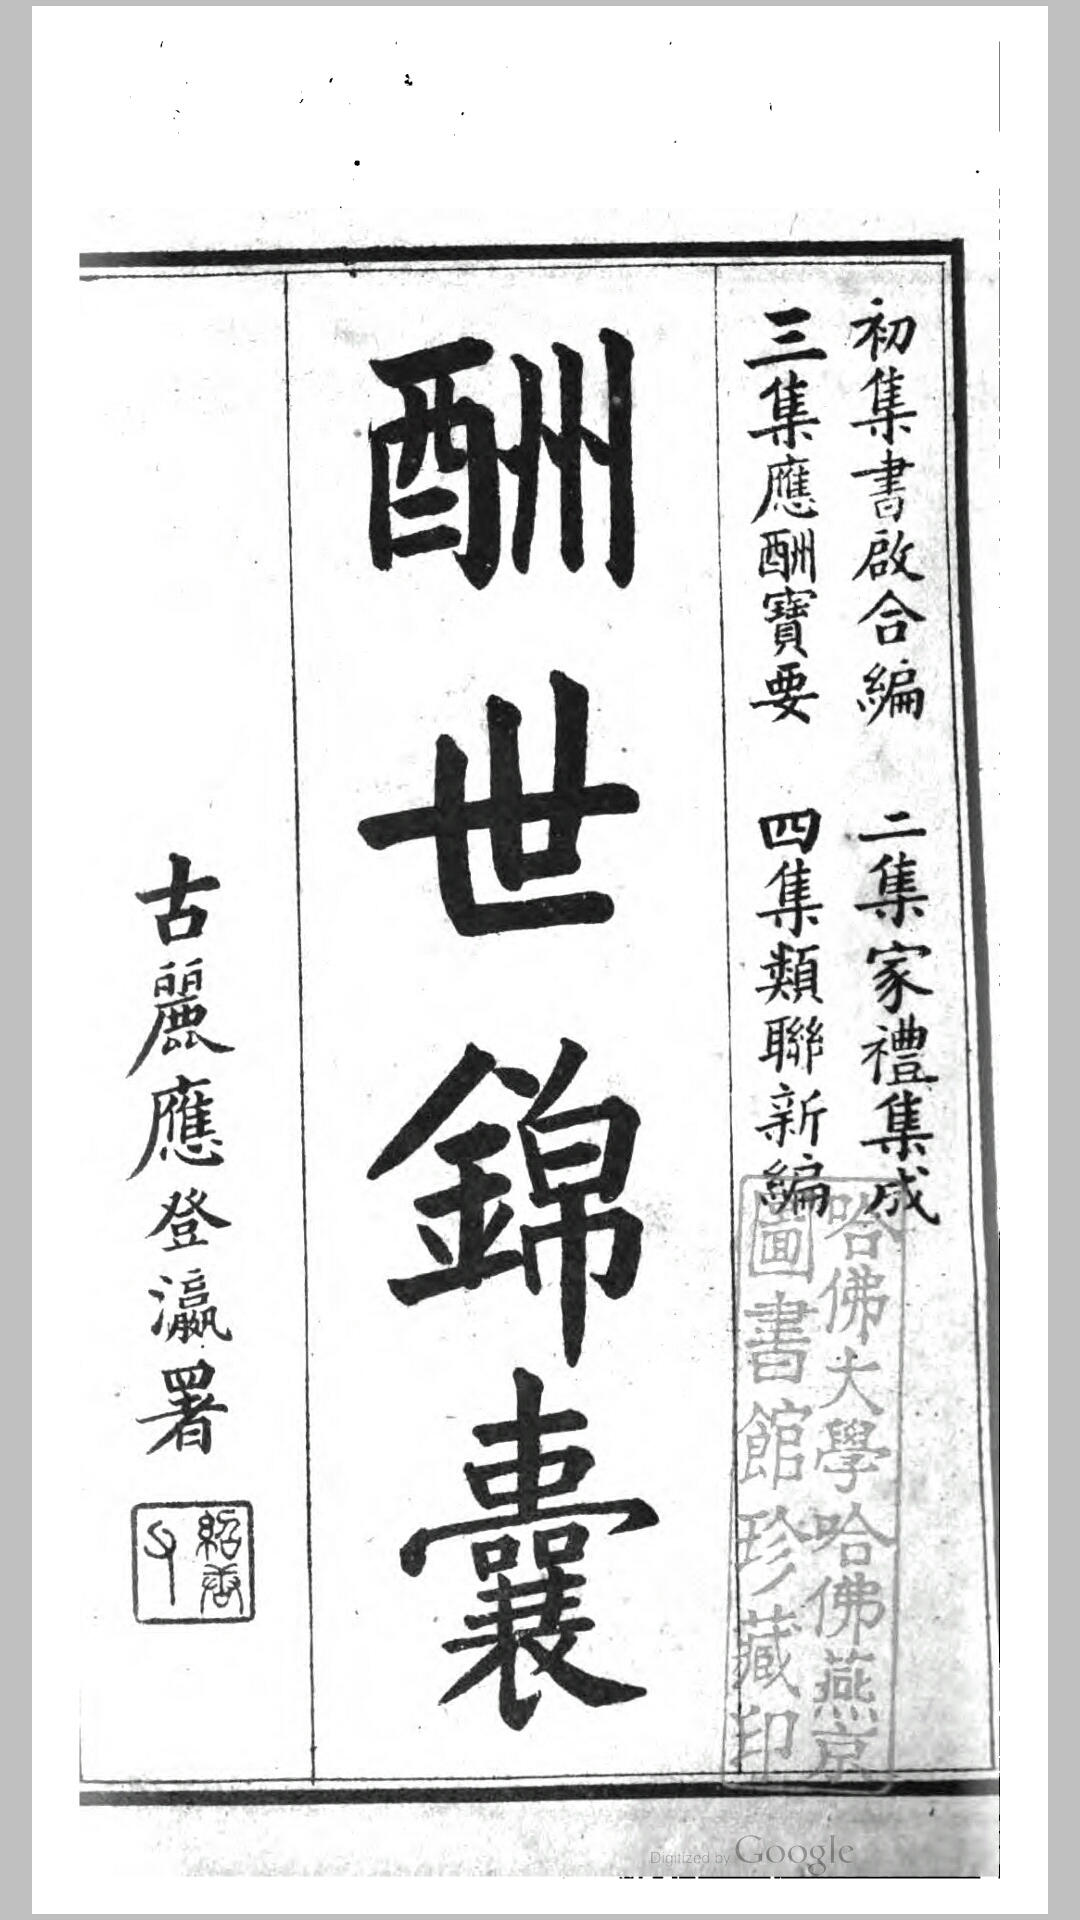 初集書啟合編 二集家禮集成
三集應酬寶要 四集類聯新編
酬世錦囊
古麗應登瀛署
哈佛大學哈佛燕京
圖書館珍藏印
Digitized by Google